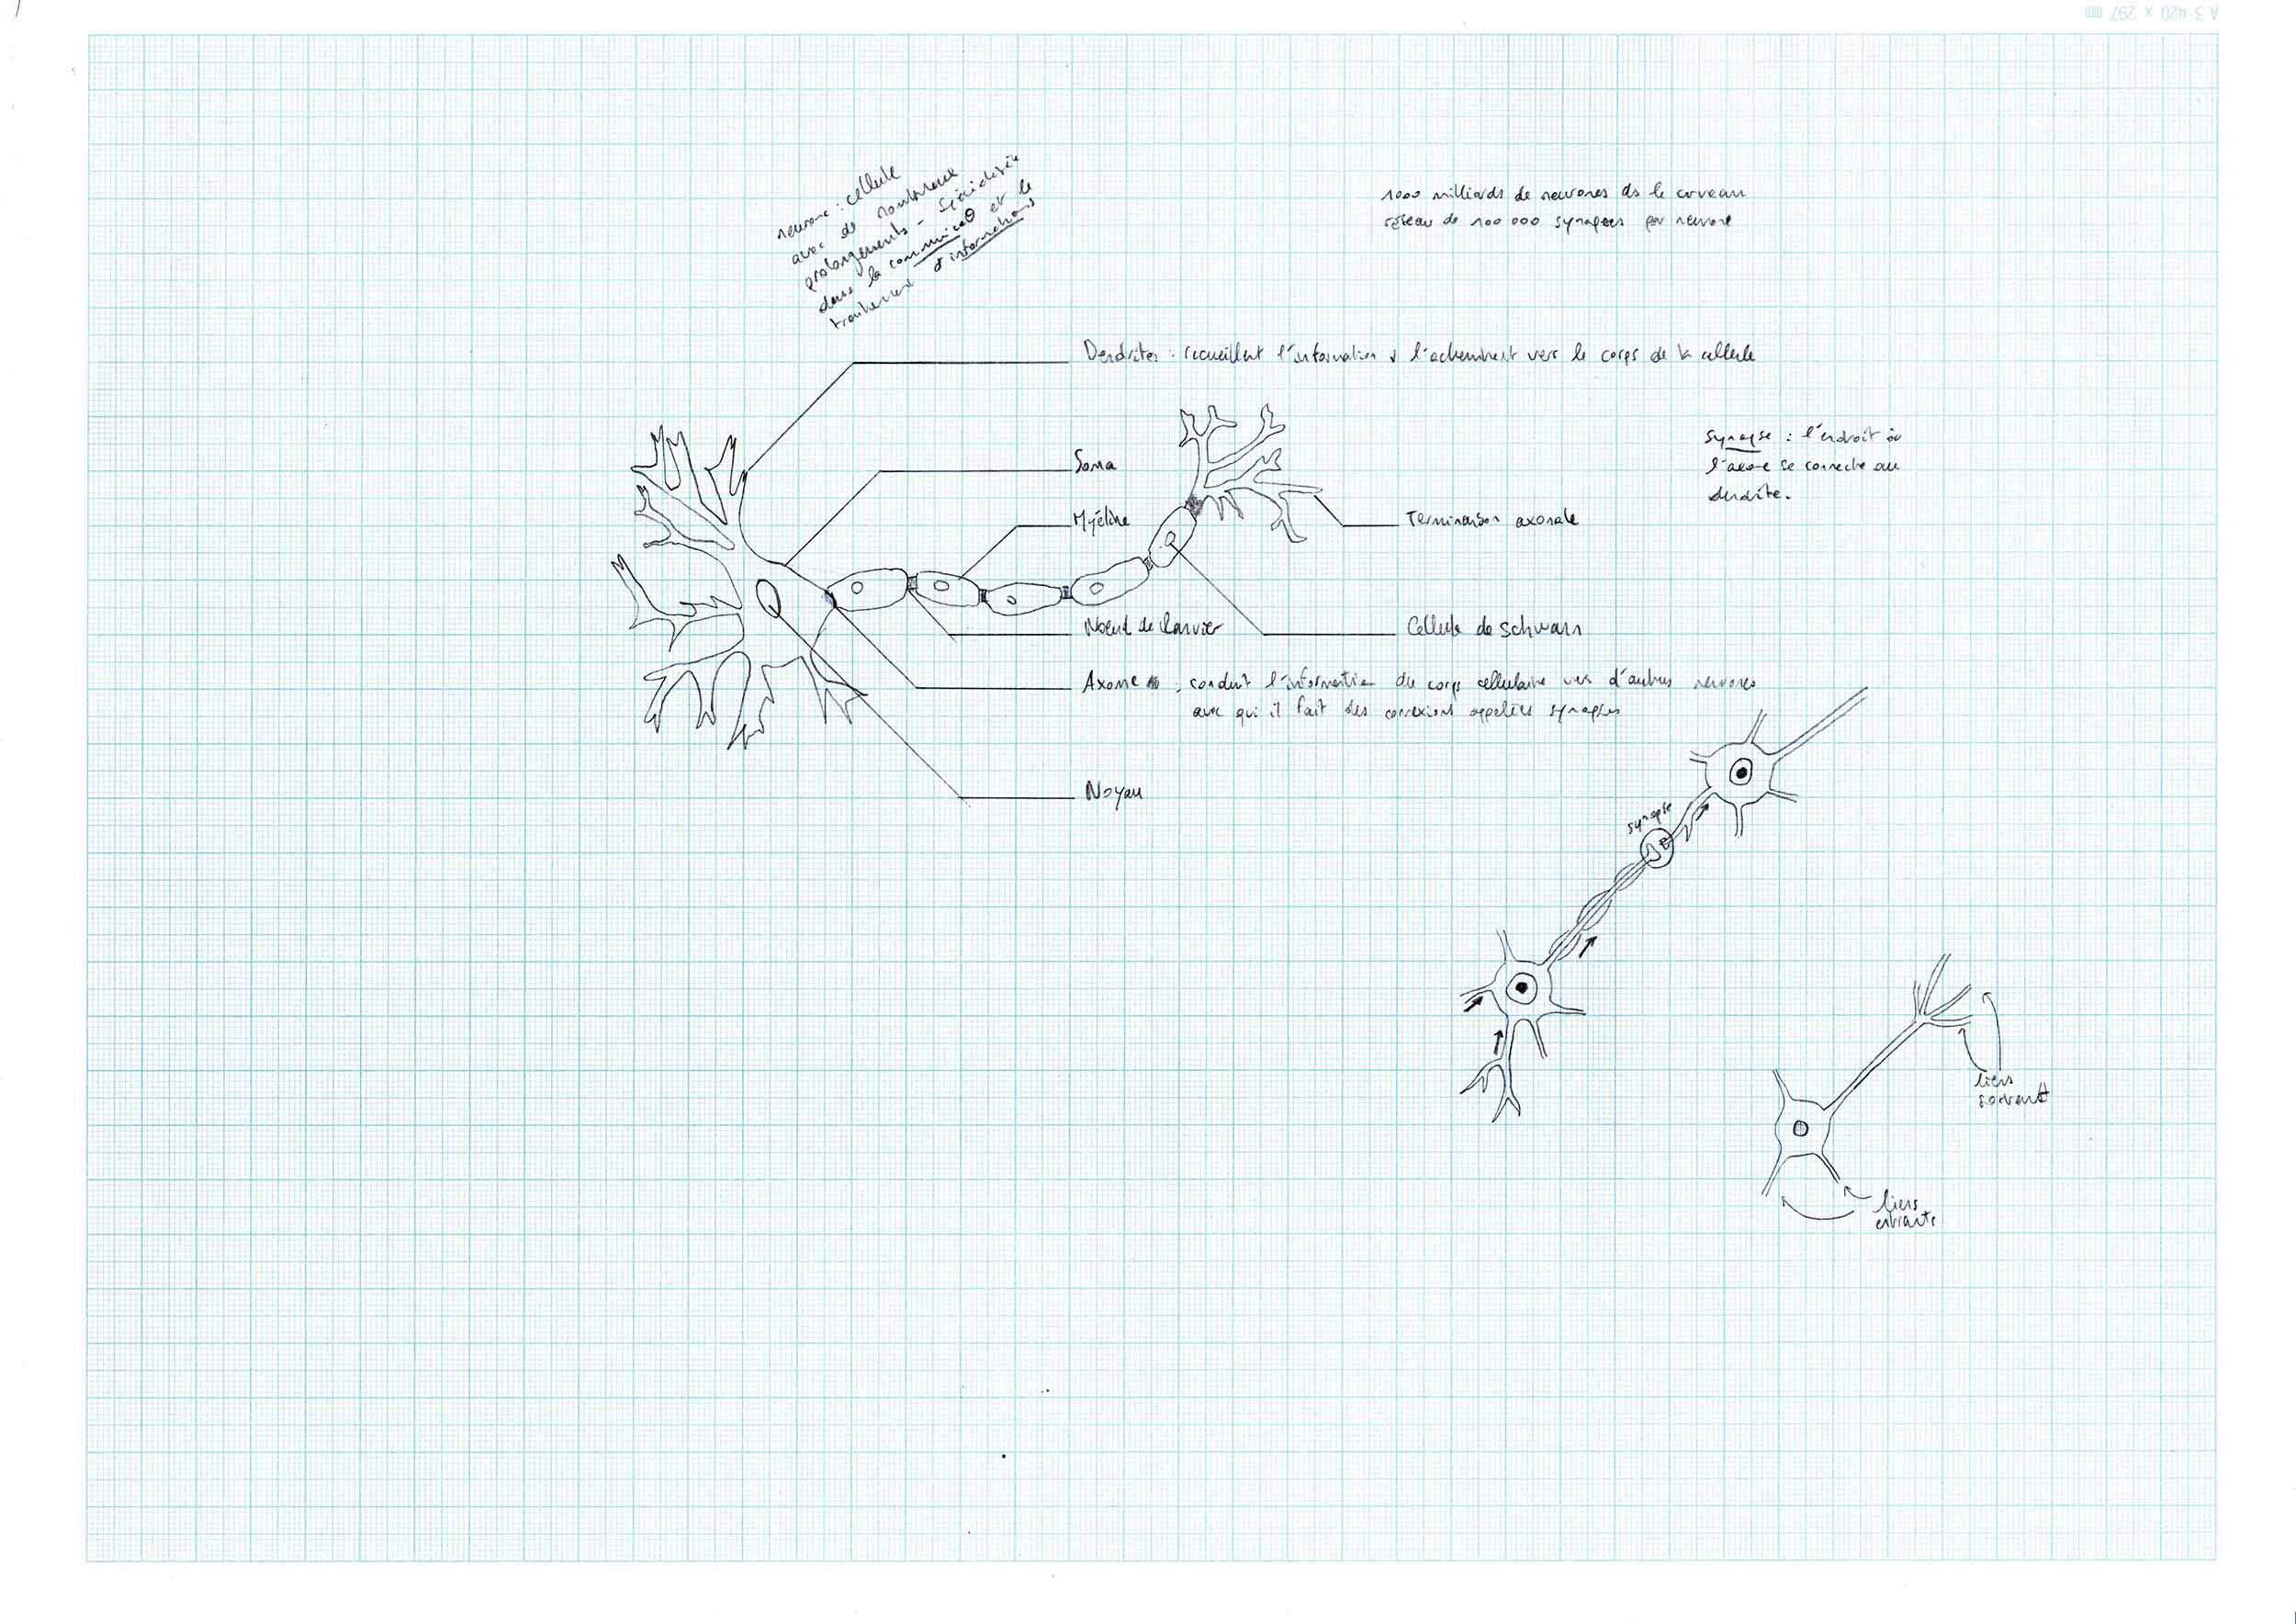 A 3 420 x 297 mm
neurone : cellule
avec de nombreux
prolongements - spécialisée
dans la communicaθ et le
traitement d'informations
1000 milliards de neurones ds le cerveau
réseau de 100 000 synapses par neurone
Dendrites : recueillent l'information & l'acheminent vers le corps de la cellule
Synapse : l'endroit où
l'axone se connecte au
dendrite.
Soma
Myéline
Terminaison axonale
Noeud de Ranvier
Cellule de Schwann
Axone : conduit l'information du corps cellulaire vers d'autres neurones
avec qui il fait des connexions appelées synapses
Noyau
synapse
liens
sortants
liens
entrants